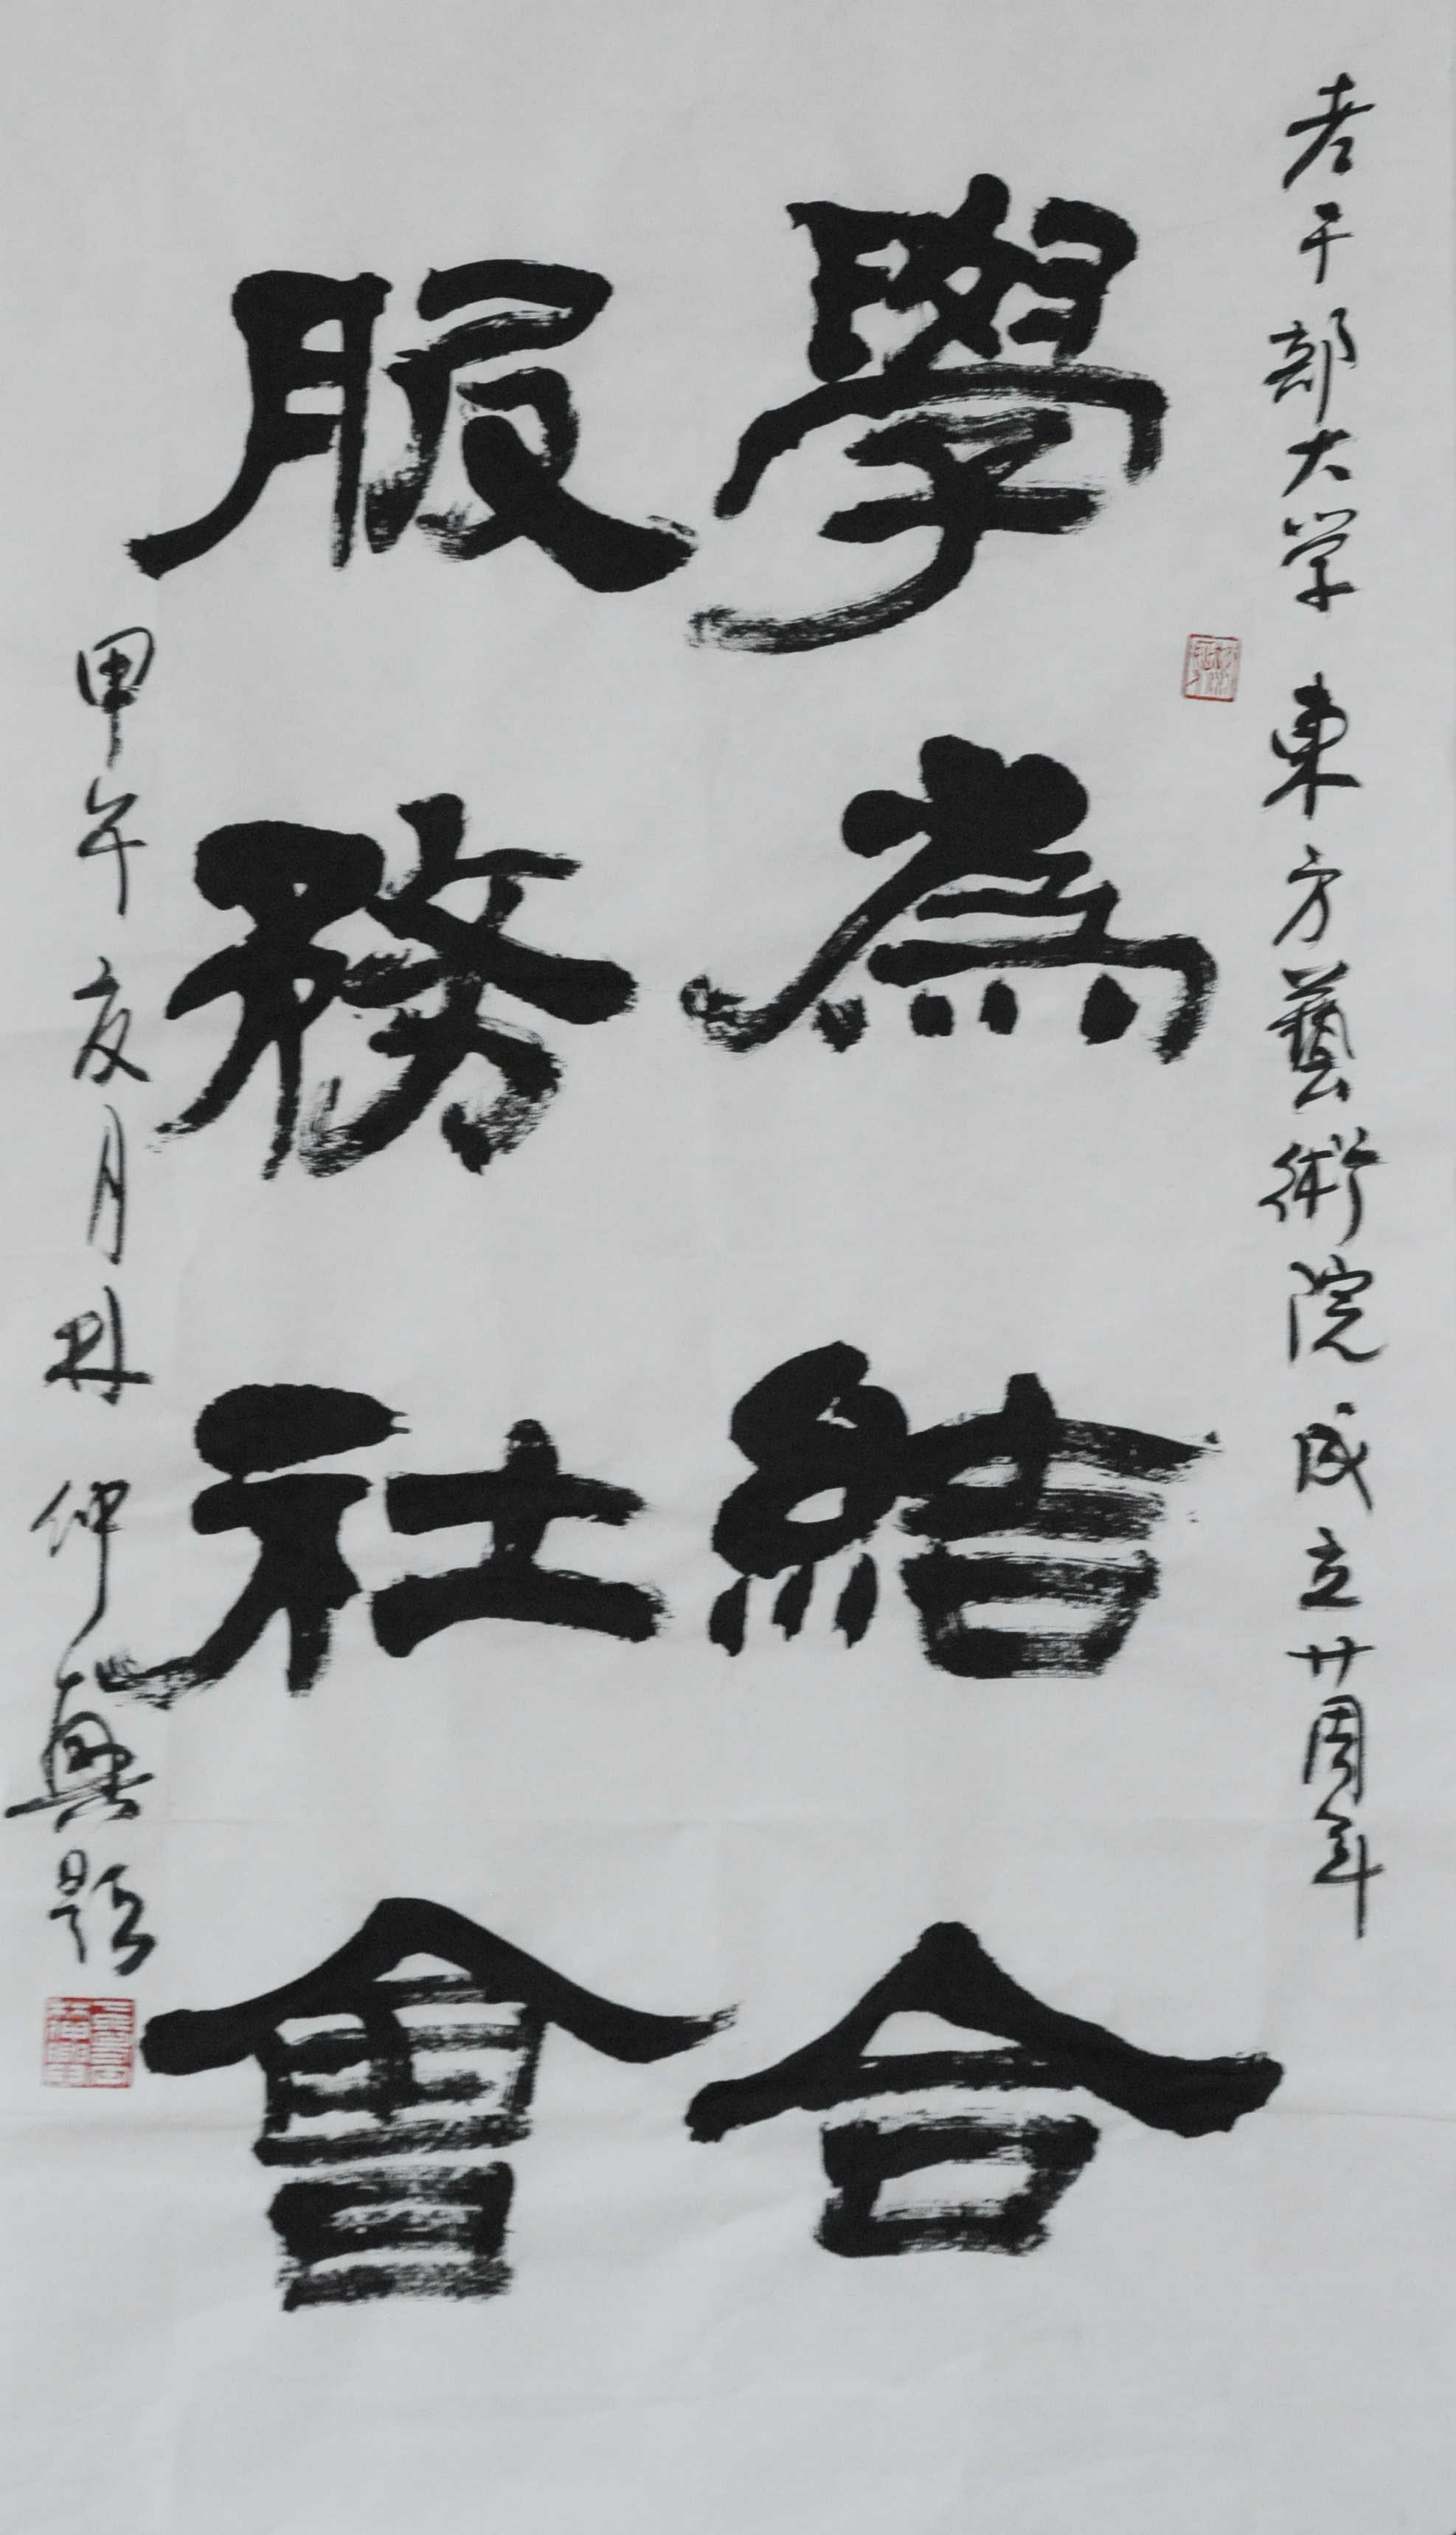 老干部大学東方藝術院成立廿周年
學為結合
服務社會
甲午亥月林仲興題